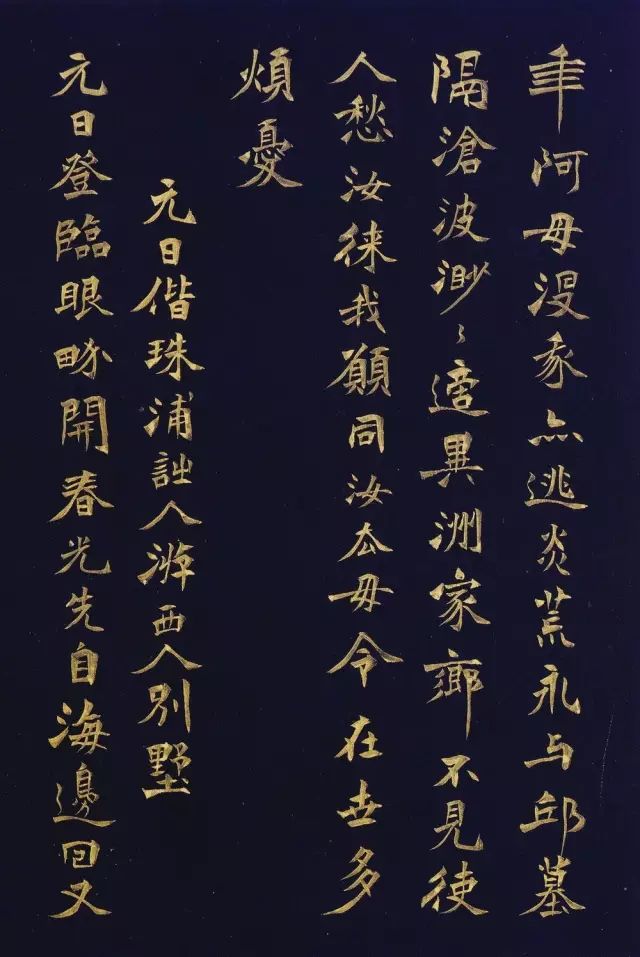 年阿母没亦逃炎荒永与邱墓
隔滄波渺〻適異洲家鄉不見使
人愁汝徠我願同汝去毋令在世多
煩憂
元日偕珠浦詘人游西人別墅
元日登臨眼畍開春光先自海邊回又